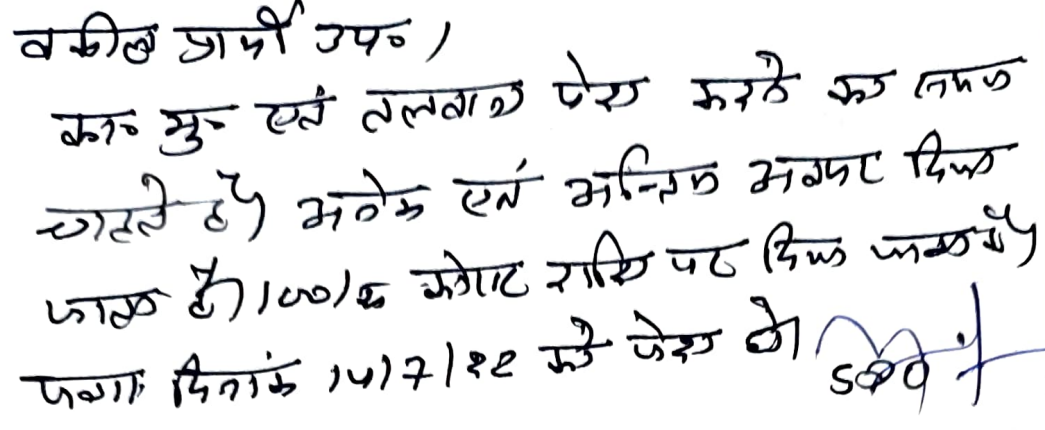 वकील प्रार्थी उप० ।
का० मु० एवं तलवाना पेश करने का समय
चाहते है। अनेक एवं अन्तिम अवसर दिया
जाता है। 100/रू कोस्ट राशि पर दिया जाता है।
दिनांक 14/7/22 को पेश हो।
SDO